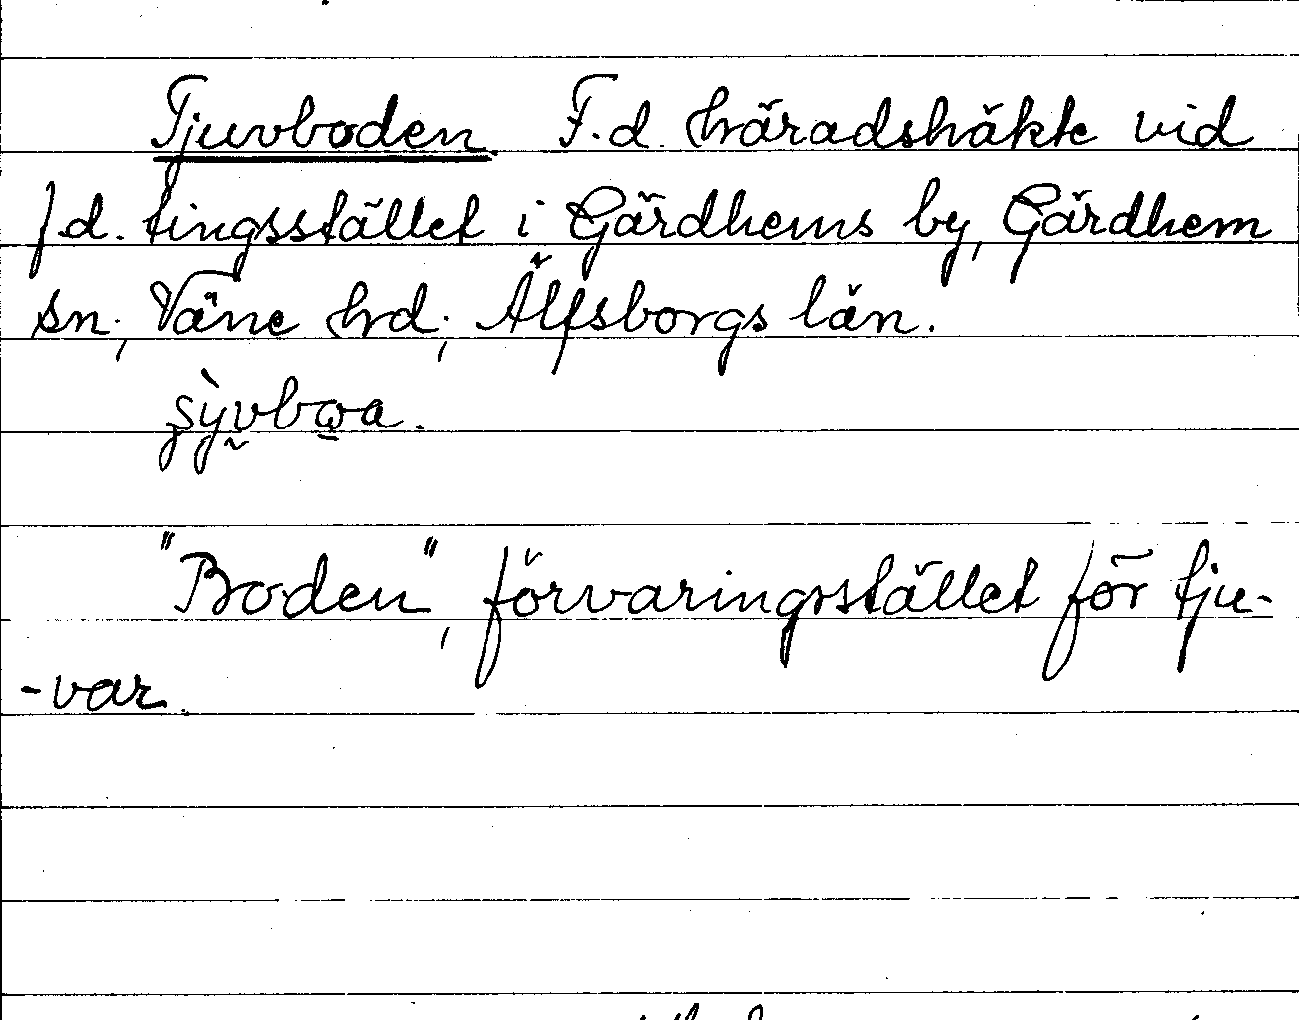 Tjuvboden. F.d. häradshäkte vid
f.d. tingsstället i Gärdhems by, Gärdhem
sn, Väne hrd, Älfsborgs län.
"Boden", förvaringsstället för tju-
-var.